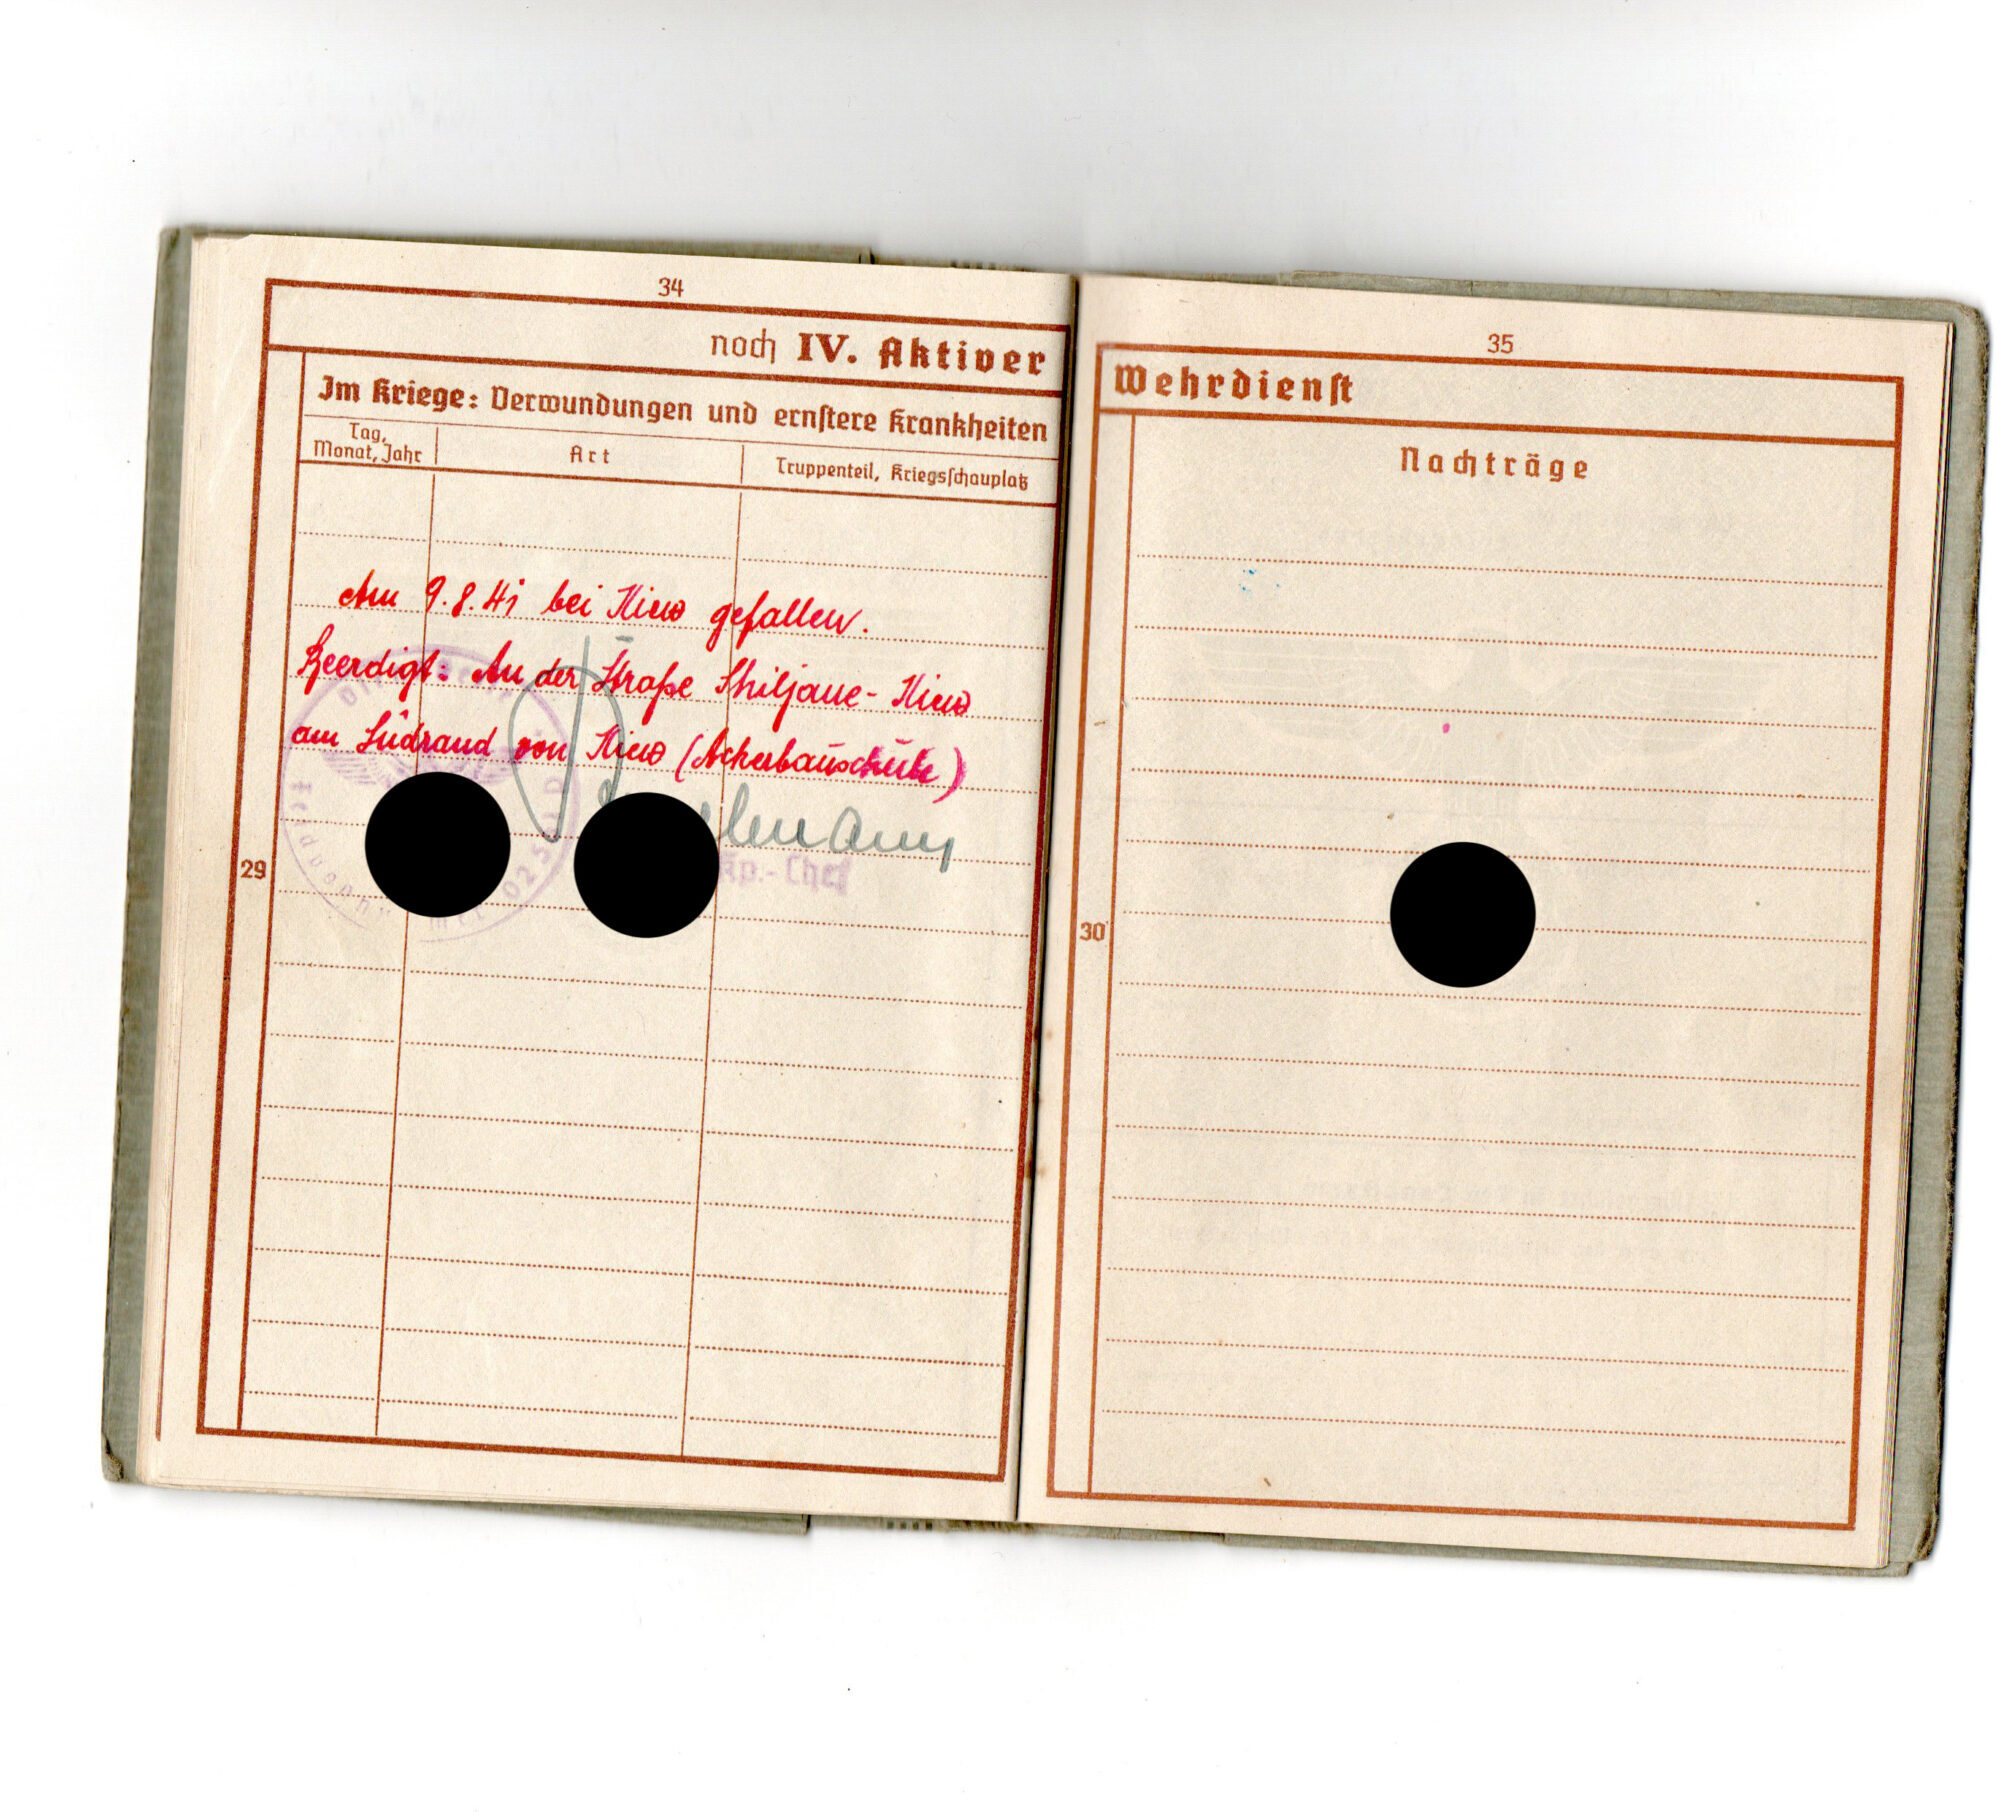 34
noch IV. Aktiver
Im Kriege: Verwundungen und ernstere Krankheiten
Tag, Monat, Jahr
Art
Truppenteil, Kriegsschauplatz
Am 9.8.41 bei Kiew gefallen.
Beerdigt: An der Straße Shiljane - Kiew
am Südrand von Kiew (Ackerbauschule)
Kp.-Chef
29
35
Wehrdienst
Nachträge
30